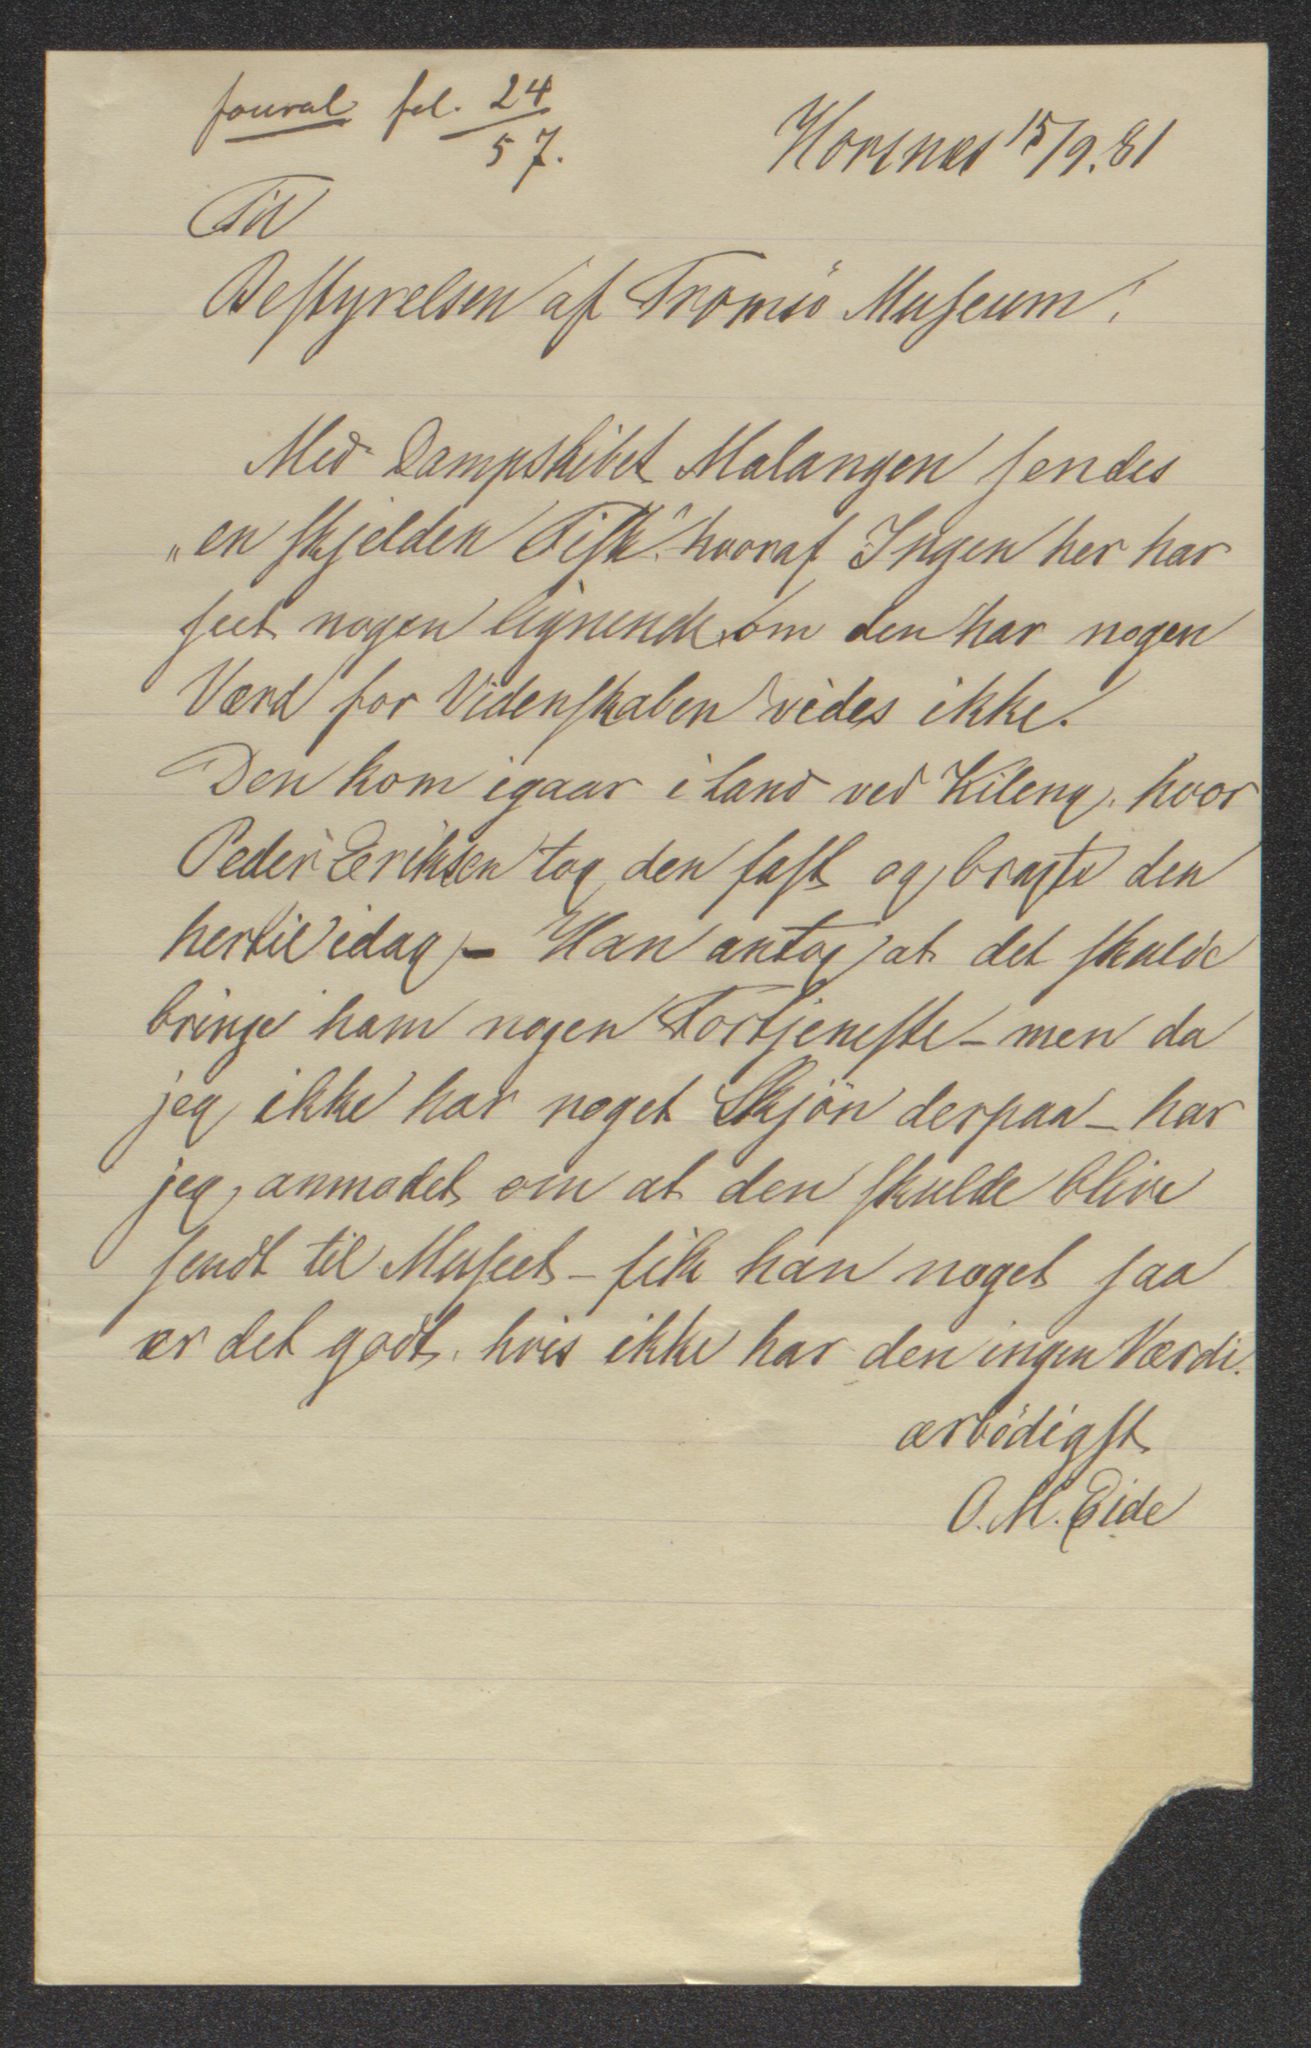 Joural fol. 24/57.
Horsnes 15/9.81
Til
Bestyrelsen af Tromsö Museum!
Med Dampskibet Malangen sendes
„en skjelden Fisk“ hvoraf Ingen her har
seet nogen lignende, om den har nogen
Værd for Videnskaben vides ikke.
Den kom igaar i Land ved Kileng, hvor
Peder Eriksen tog den fast og bragte den
hertil idag – Han antog at det skulde
bringe ham nogen Fortjeneste – men da
jeg ikke har noget Skjön derpaa – har
jeg anmodet om at den skulde blive
sendt til Museet – fik han noget saa
er det godt, hvis ikke har den ingen Værdi.
ærbödigst
O. M. Eide